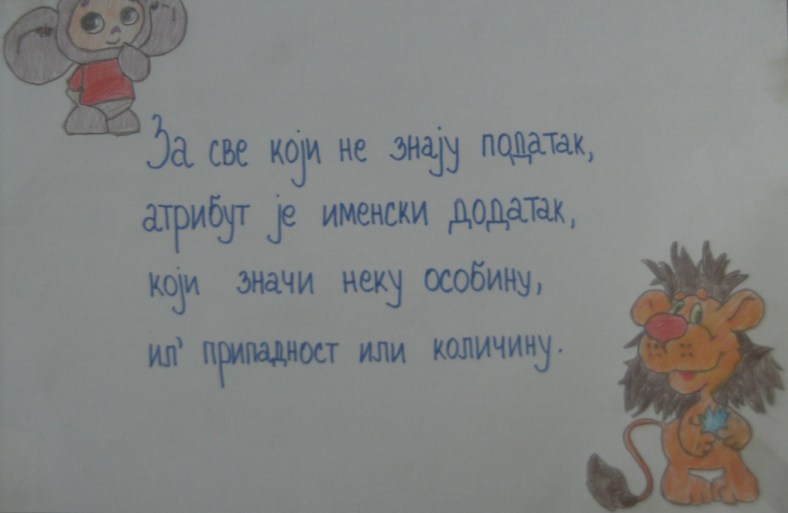 За све који не знају податак,
атрибут је именски додатак,
који значи неку особину,
ил' припадност или количину.